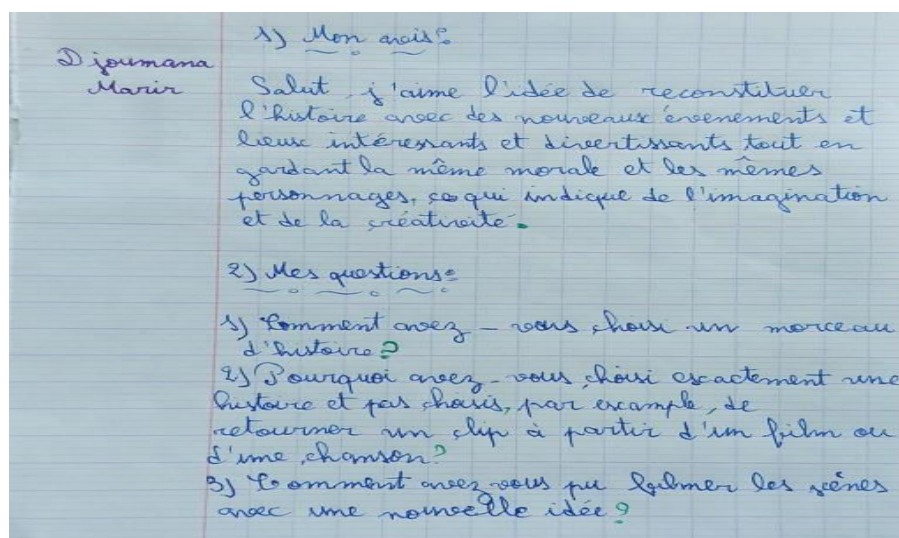 1) Mon avis:
Djoumana
Marir
Salut, j'aime l'idée de reconstituer
l'histoire avec des nouveaux évenements et
lieux intéressants et divertissants tout en
gardant la même morale et les mêmes
personnages, ce qui indique de l'imagination
et de la créativité.
2) Mes questions:
1) Comment avez-vous choisi un morceau
d'histoire?
2) Pourquoi avez-vous choisi exactement une
histoire et pas choisis, par exemple, de
retourner un clip à partir d'un film ou
d'une chanson?
3) Comment avez vous pu filmer les scènes
avec une nouvelle idée?